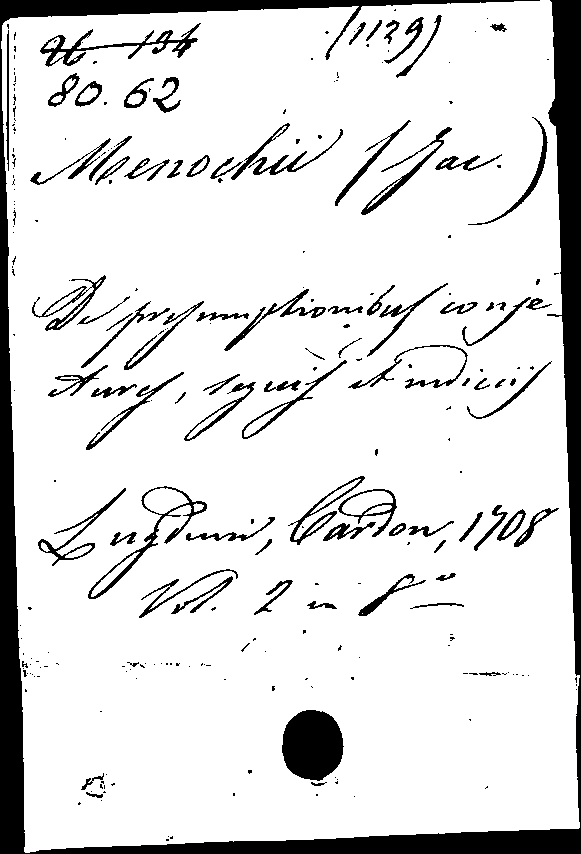 26. 134 (1129)
80. 62
Menochii (Jac.)
De presumptionibus conje-
tures, signis et indiciis
Lugduni, Cardon, 1708
Vol. 2 in 8º